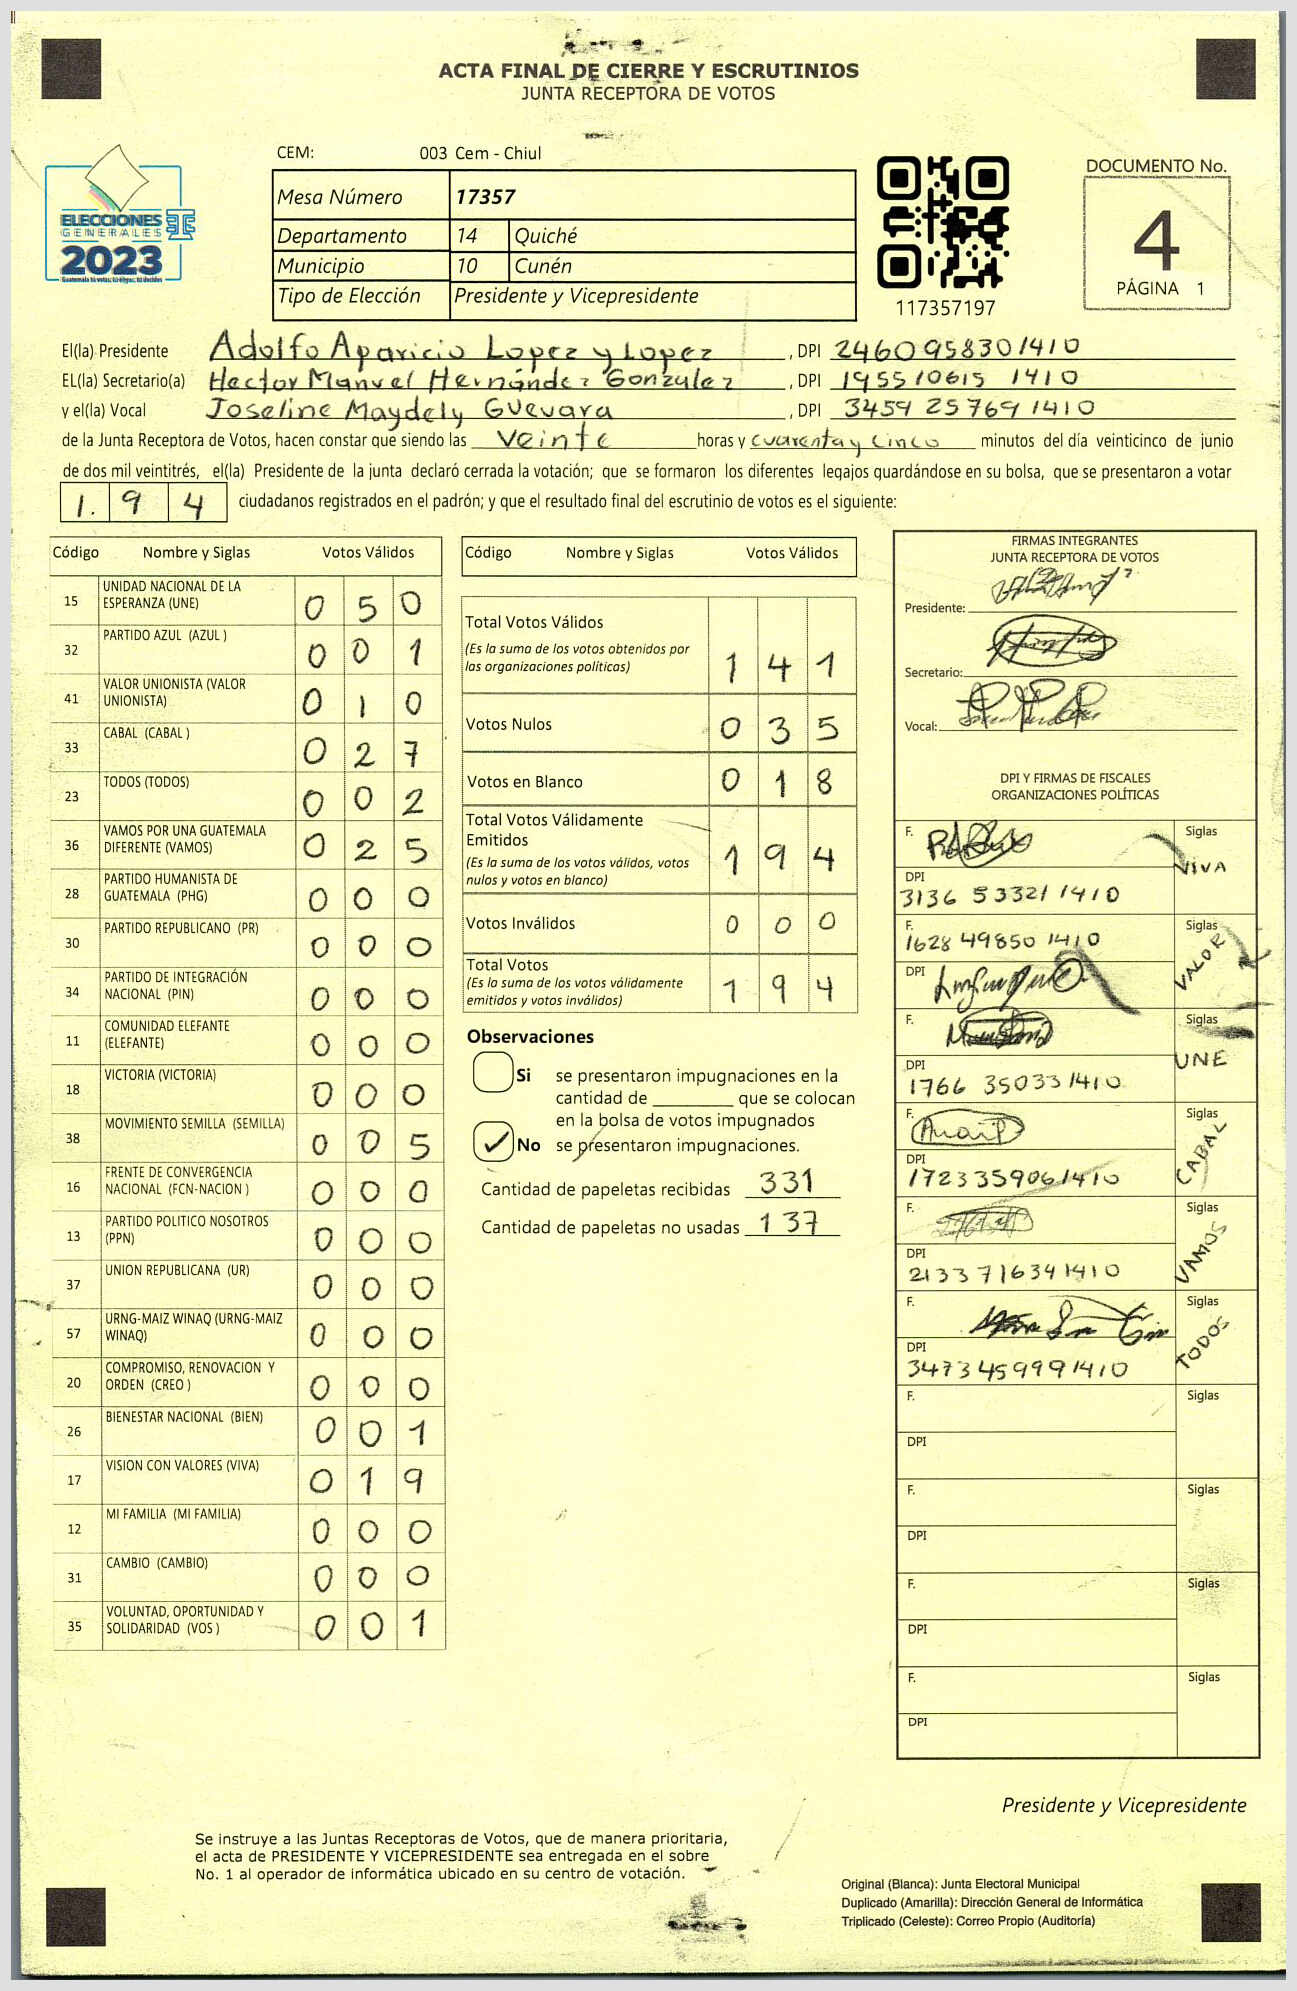 ACTA FINAL DE CIERRE Y ESCRUTINIOS
JUNTA RECEPTORA DE VOTOS
CEM: 003 Cem - Chiul
ELECCIONES
GENERALES
2023
Mesa Número 17357
Departamento 14 Quiché
Municipio 10 Cunén
Tipo de Elección Presidente y Vicepresidente
117357197
DOCUMENTO No.
4
PÁGINA 1
El(la) Presidente Adolfo Aparicio Lopez y Lopez, DPI 2460958301410
EL(la) Secretario(a) Hector Manuel Hernández Gonzalez, DPI 195510615 1410
y el(la) Vocal Joseline Maydely Guevara, DPI 3459 25769 1410
de la Junta Receptora de Votos, hacen constar que siendo las veinte horas y cuarenta y cinco minutos del día veinticinco de junio
de dos mil veintitrés, el(la) Presidente de la junta declaró cerrada la votación; que se formaron los diferentes legajos quardándose en su bolsa, que se presentaron a votar
1. 9 4 ciudadanos registrados en el padrón; y que el resultado final del escrutinio de votos es el siguiente:
Código Nombre y Siglas Votos Válidos
15 UNIDAD NACIONAL DE LA ESPERANZA (UNE) 0 5 0
32 PARTIDO AZUL (AZUL ) 0 0 1
41 VALOR UNIONISTA (VALOR UNIONISTA) 0 1 0
33 CABAL (CABAL ) 0 2 7
23 TODOS (TODOS) 0 0 2
36 VAMOS POR UNA GUATEMALA DIFERENTE (VAMOS) 0 2 5
28 PARTIDO HUMANISTA DE GUATEMALA (PHG) 0 0 0
30 PARTIDO REPUBLICANO (PR) 0 0 0
34 PARTIDO DE INTEGRACIÓN NACIONAL (PIN) 0 0 0
11 COMUNIDAD ELEFANTE (ELEFANTE) 0 0 0
18 VICTORIA (VICTORIA) 0 0 0
38 MOVIMIENTO SEMILLA (SEMILLA) 0 0 5
16 FRENTE DE CONVERGENCIA NACIONAL (FCN-NACION ) 0 0 0
13 PARTIDO POLITICO NOSOTROS (PPN) 0 0 0
37 UNION REPUBLICANA (UR) 0 0 0
57 URNG-MAIZ WINAQ (URNG-MAIZ WINAQ) 0 0 0
20 COMPROMISO, RENOVACION Y ORDEN (CREO ) 0 0 0
26 BIENESTAR NACIONAL (BIEN) 0 0 1
17 VISION CON VALORES (VIVA) 0 1 9
12 MI FAMILIA (MI FAMILIA) 0 0 0
31 CAMBIO (CAMBIO) 0 0 0
35 VOLUNTAD, OPORTUNIDAD Y SOLIDARIDAD (VOS ) 0 0 1
Código Nombre y Siglas Votos Válidos
Total Votos Válidos 1 4 1
(Es la suma de los votos obtenidos por
las organizaciones políticas)
Votos Nulos 0 3 5
Votos en Blanco 0 1 8
Total Votos Válidamente
Emitidos 1 9 4
(Es la suma de los votos válidos, votos
nulos y votos en blanco)
Votos Inválidos 0 0 0
Total Votos 1 9 4
(Es la suma de los votos válidamente
emitidos y votos inválidos)
Observaciones
Si se presentaron impugnaciones en la
cantidad de ________ que se colocan
en la bolsa de votos impugnados
No se presentaron impugnaciones.
Cantidad de papeletas recibidas 331
Cantidad de papeletas no usadas 137
FIRMAS INTEGRANTES
JUNTA RECEPTORA DE VOTOS
Presidente:
Secretario:
Vocal:
DPI Y FIRMAS DE FISCALES
ORGANIZACIONES POLÍTICAS
F. Siglas VIVA
DPI 3136 53321 1410
F. 1628 49850 1410 Siglas VALOR
DPI
F. Siglas UNE
DPI 1766 35033 1410
F. Siglas CABAL
DPI 1723359061410
F. Siglas VAMOS
DPI 2133 716341410
F. Siglas TODOS
DPI 3473 459991410
F. Siglas
DPI
F. Siglas
DPI
F. Siglas
DPI
F. Siglas
DPI
Presidente y Vicepresidente
Se instruye a las Juntas Receptoras de Votos, que de manera prioritaria,
el acta de PRESIDENTE Y VICEPRESIDENTE sea entregada en el sobre
No. 1 al operador de informática ubicado en su centro de votación.
Original (Blanca): Junta Electoral Municipal
Duplicado (Amarilla): Dirección General de Informática
Triplicado (Celeste): Correo Propio (Auditoría)